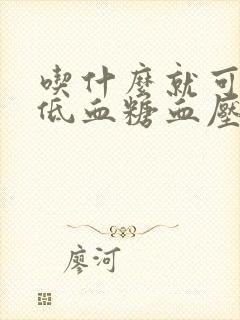 喫什麼就可
低血糖血壓
廖河